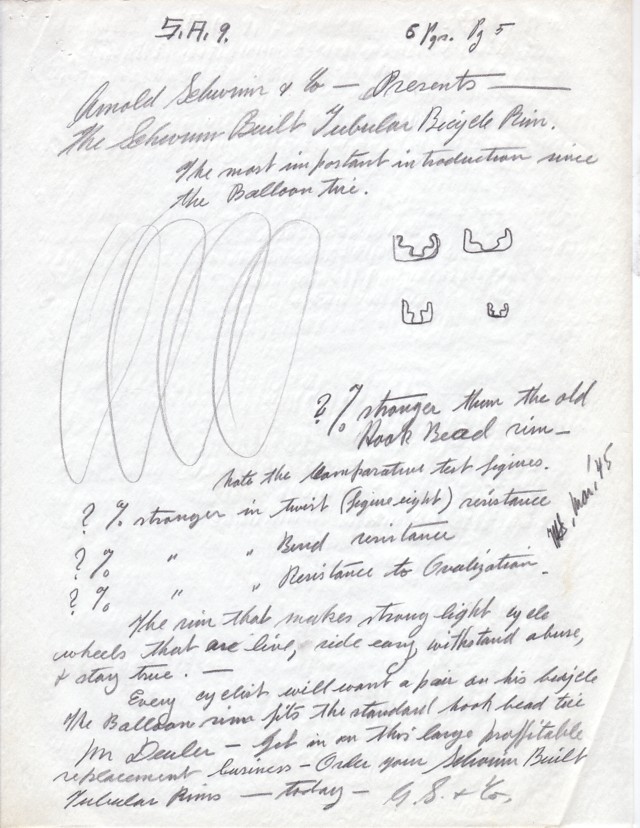 S.A.9.
6 Pgs. Pg 5
Arnold Schwinn & Co — Presents —
The Schwinn Built Tubular Bicycle Rim.
The most important introduction since
the Balloon tire.
? % stronger than the old
Hook Bead rim —
note the comparative test figures.
? % stronger in twist (figure eight) resistance
? % " " Bend resistance
? % " " Resistance to Ovalization.
Mar, '45
The rim that makes strong light cycle
wheels that are live, ride easy, withstand abuse,
& stay true. —
Every cyclist will want a pair on his bicycle
The Balloon rim fits the standard hook bead tire
Mr Dealer — Get in on this large profitable
replacement business — Order your Schwinn Built
Tubular Rims — today — A. S. & Co,